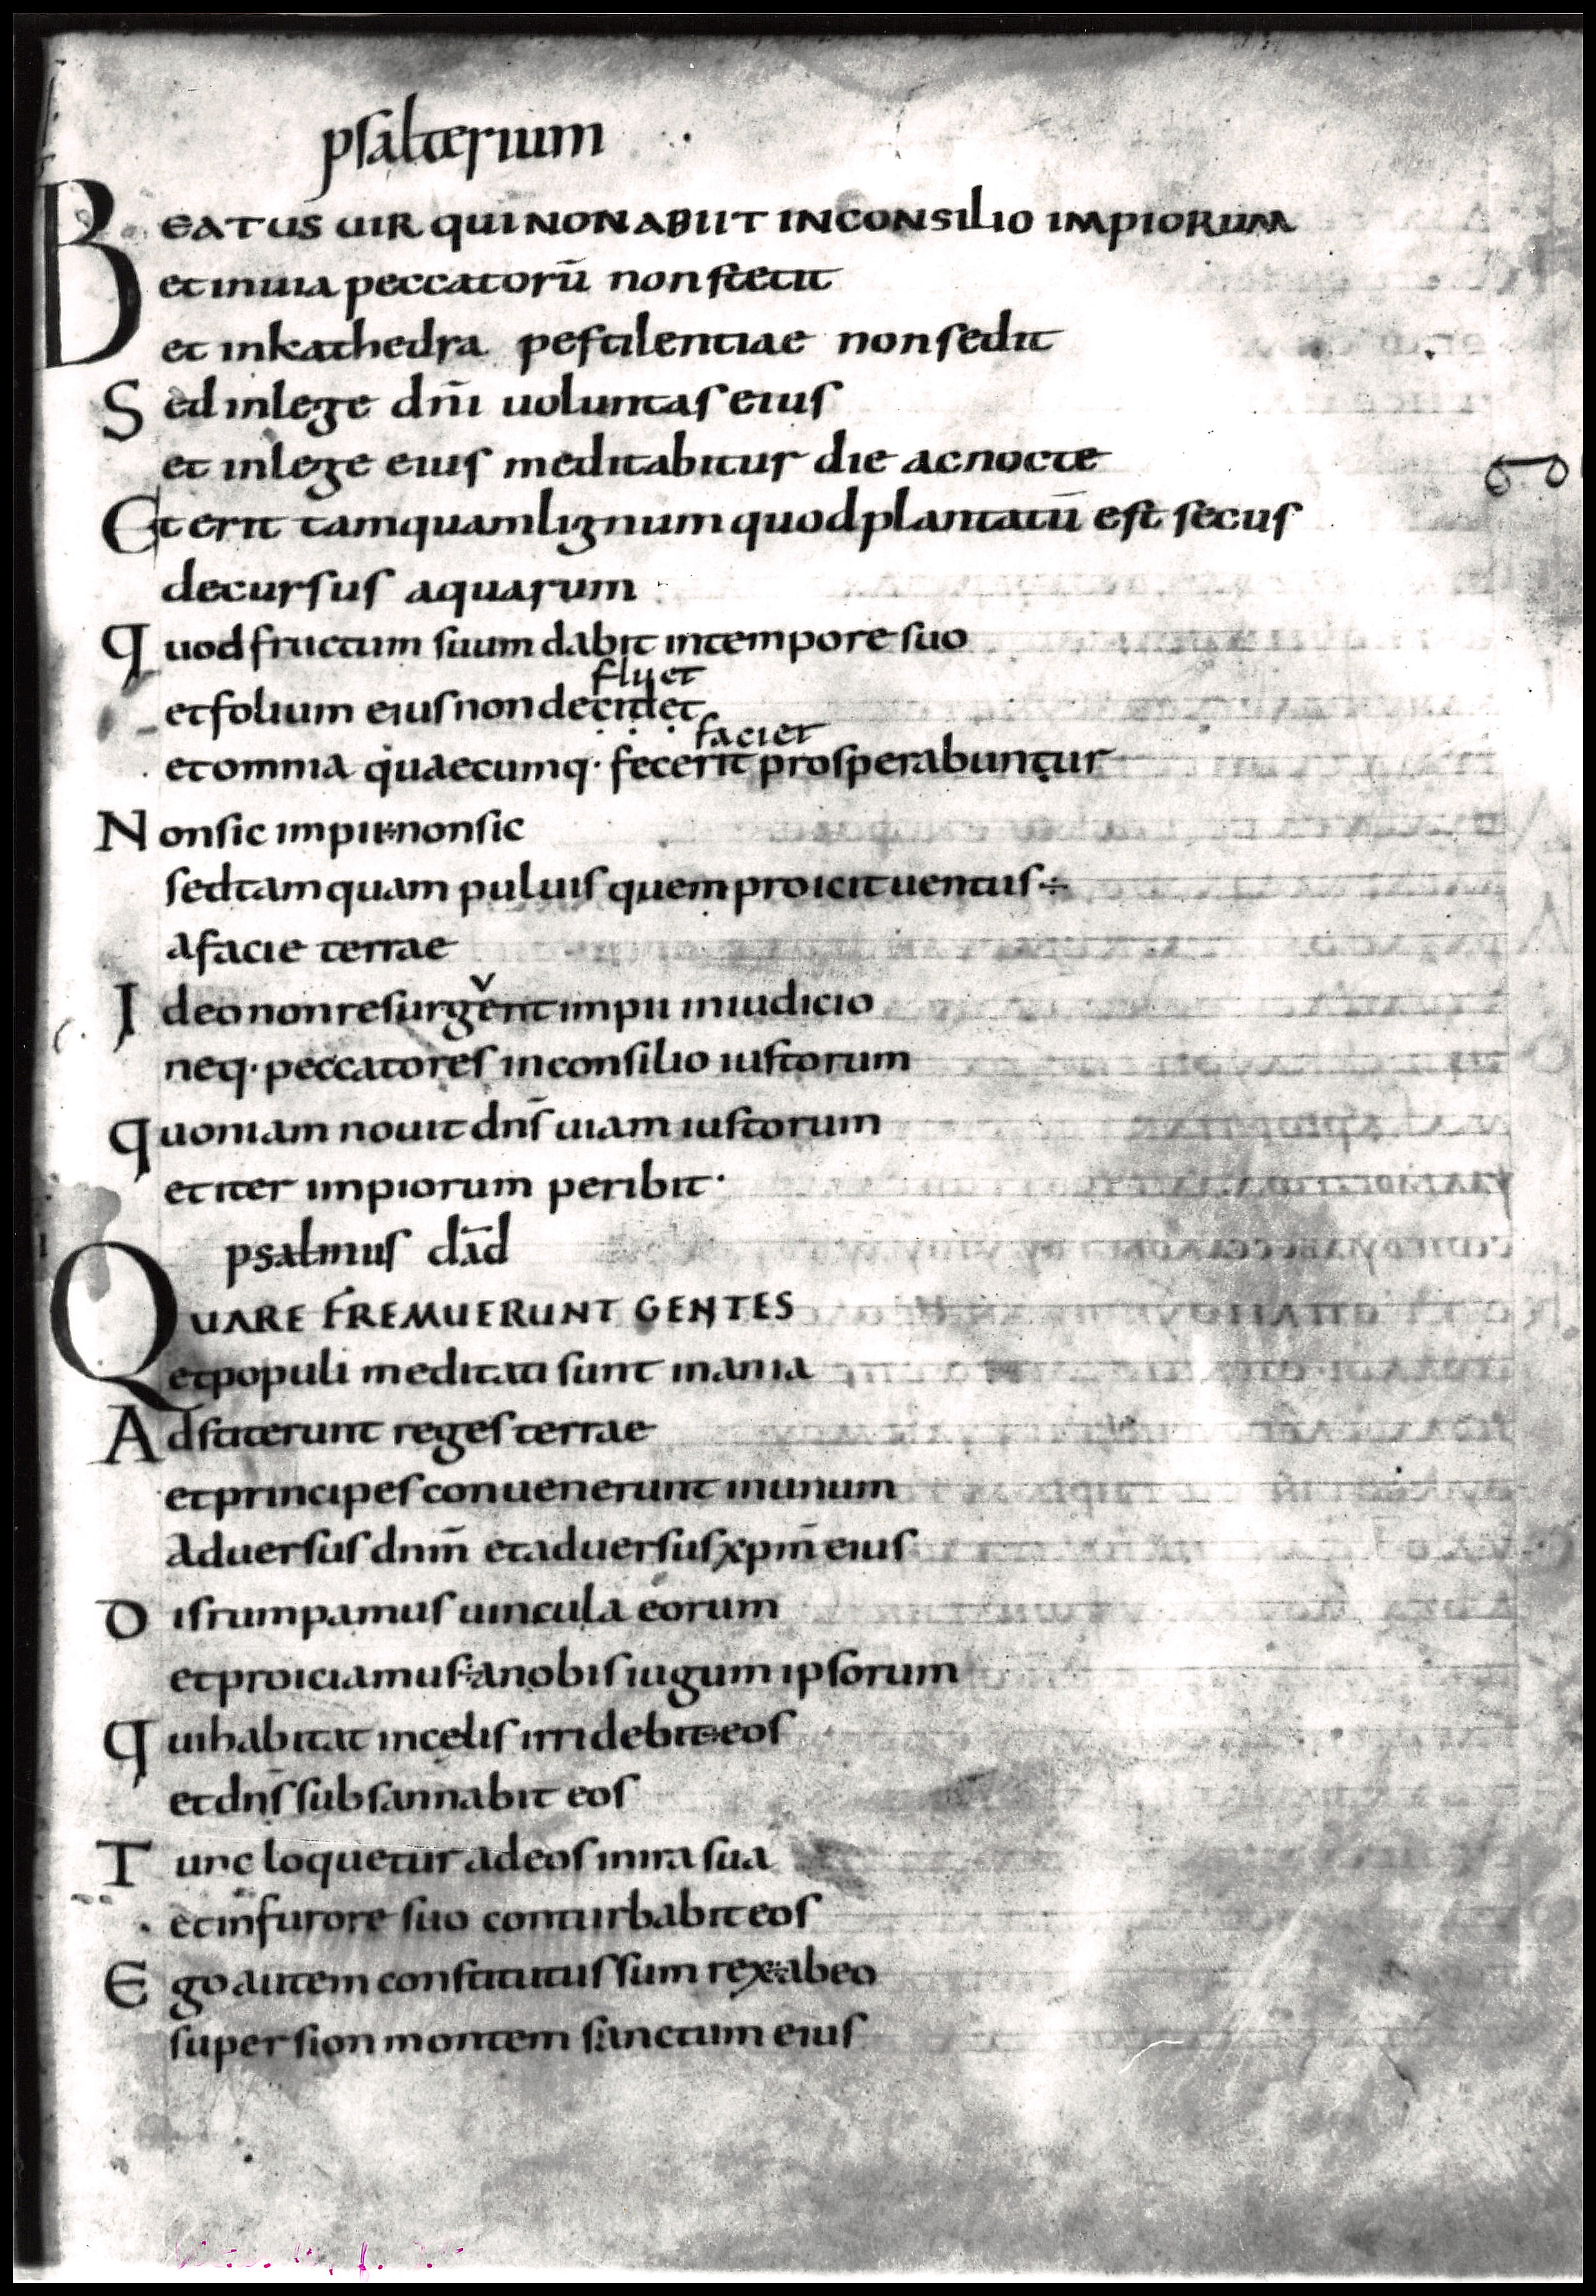 psalterium
BEATUS UIR QUI NON ABIIT IN CONSILIO IMPIORUM
et in uia peccatorū non stetit
et in kathedra pestilentiae non sedit
Sed in lege dn̄i uoluntas eius
et in lege eius meditabitur die ac nocte
Et erit tamquam lignum quod plantatū est secus
decursus aquarum
Quod fructum suum dabit in tempore suo
fluet
et folium eius non decidet
faciet
et omnia quaecumq· fecerit prosperabuntur
Non sic impii ÷ non sic
sed tamquam puluis quem proicit uentus ÷
a facie terrae
Ideo non resurgent impii in iudicio
neq· peccatores in consilio iustorum
quoniam nouit dn̄s uiam iustorum
et iter impiorum peribit·
psalmus dād
QUARE FREMUERUNT GENTES
et populi meditati sunt inania
Adstiterunt reges terrae
et principes conuenerunt in unum
aduersus dnm̄ et aduersus xpm̄ eius
Disrumpamus uincula eorum
et proiciamus ÷ a nobis iugum ipsorum
Qui habitat in celis irridebit ÷ eos
et dn̄s subsannabit eos
Tunc loquetur ad eos in ira sua
et in furore suo conturbabit eos
Ego autem constitutus sum rex ÷ ab eo
super sion montem sanctum eius